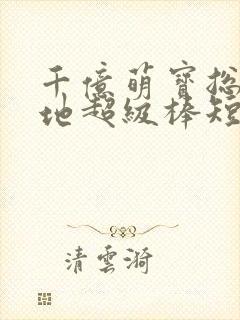 千億萌寶總
地超級棒短
清雲漪